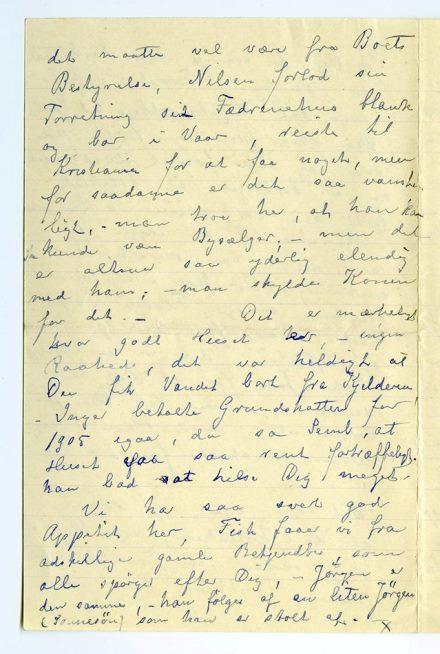 det maatte vel være fra Boets
Bestyrelse, Nilsen forlod sin
Forretning sit Fædrenehus blank
og bar i Vaar, reiste til
Kristiania for at faa noget, men
for saadanne er det saa vanske
ligt, - man tror her, at han kan
kunde være Bysælger, - men det
er altsaa saa yderlig elendig
med ham; - man skylde Konen
for det. - Det er mærkeligt
hvor godt Huset er, - ingen
Raahed, det var heldigt at
Du fik Vandet bort fra Kjelderen,
- Inger betalte Grundskatten for
1905 igaar, da sa Semb, at
Huset saa saa rent fortræffeligt.
han bad at hilse Dig meget.
Vi har saa svært god
Appetit her, Fisk faaer vi fra
adskillige gamle Bekjendte, som
alle spörger efter Dig, - Jörgen er
den samme, - han fölges af en liten Jörgen
(Sonnesön) som han er stolt af. - x